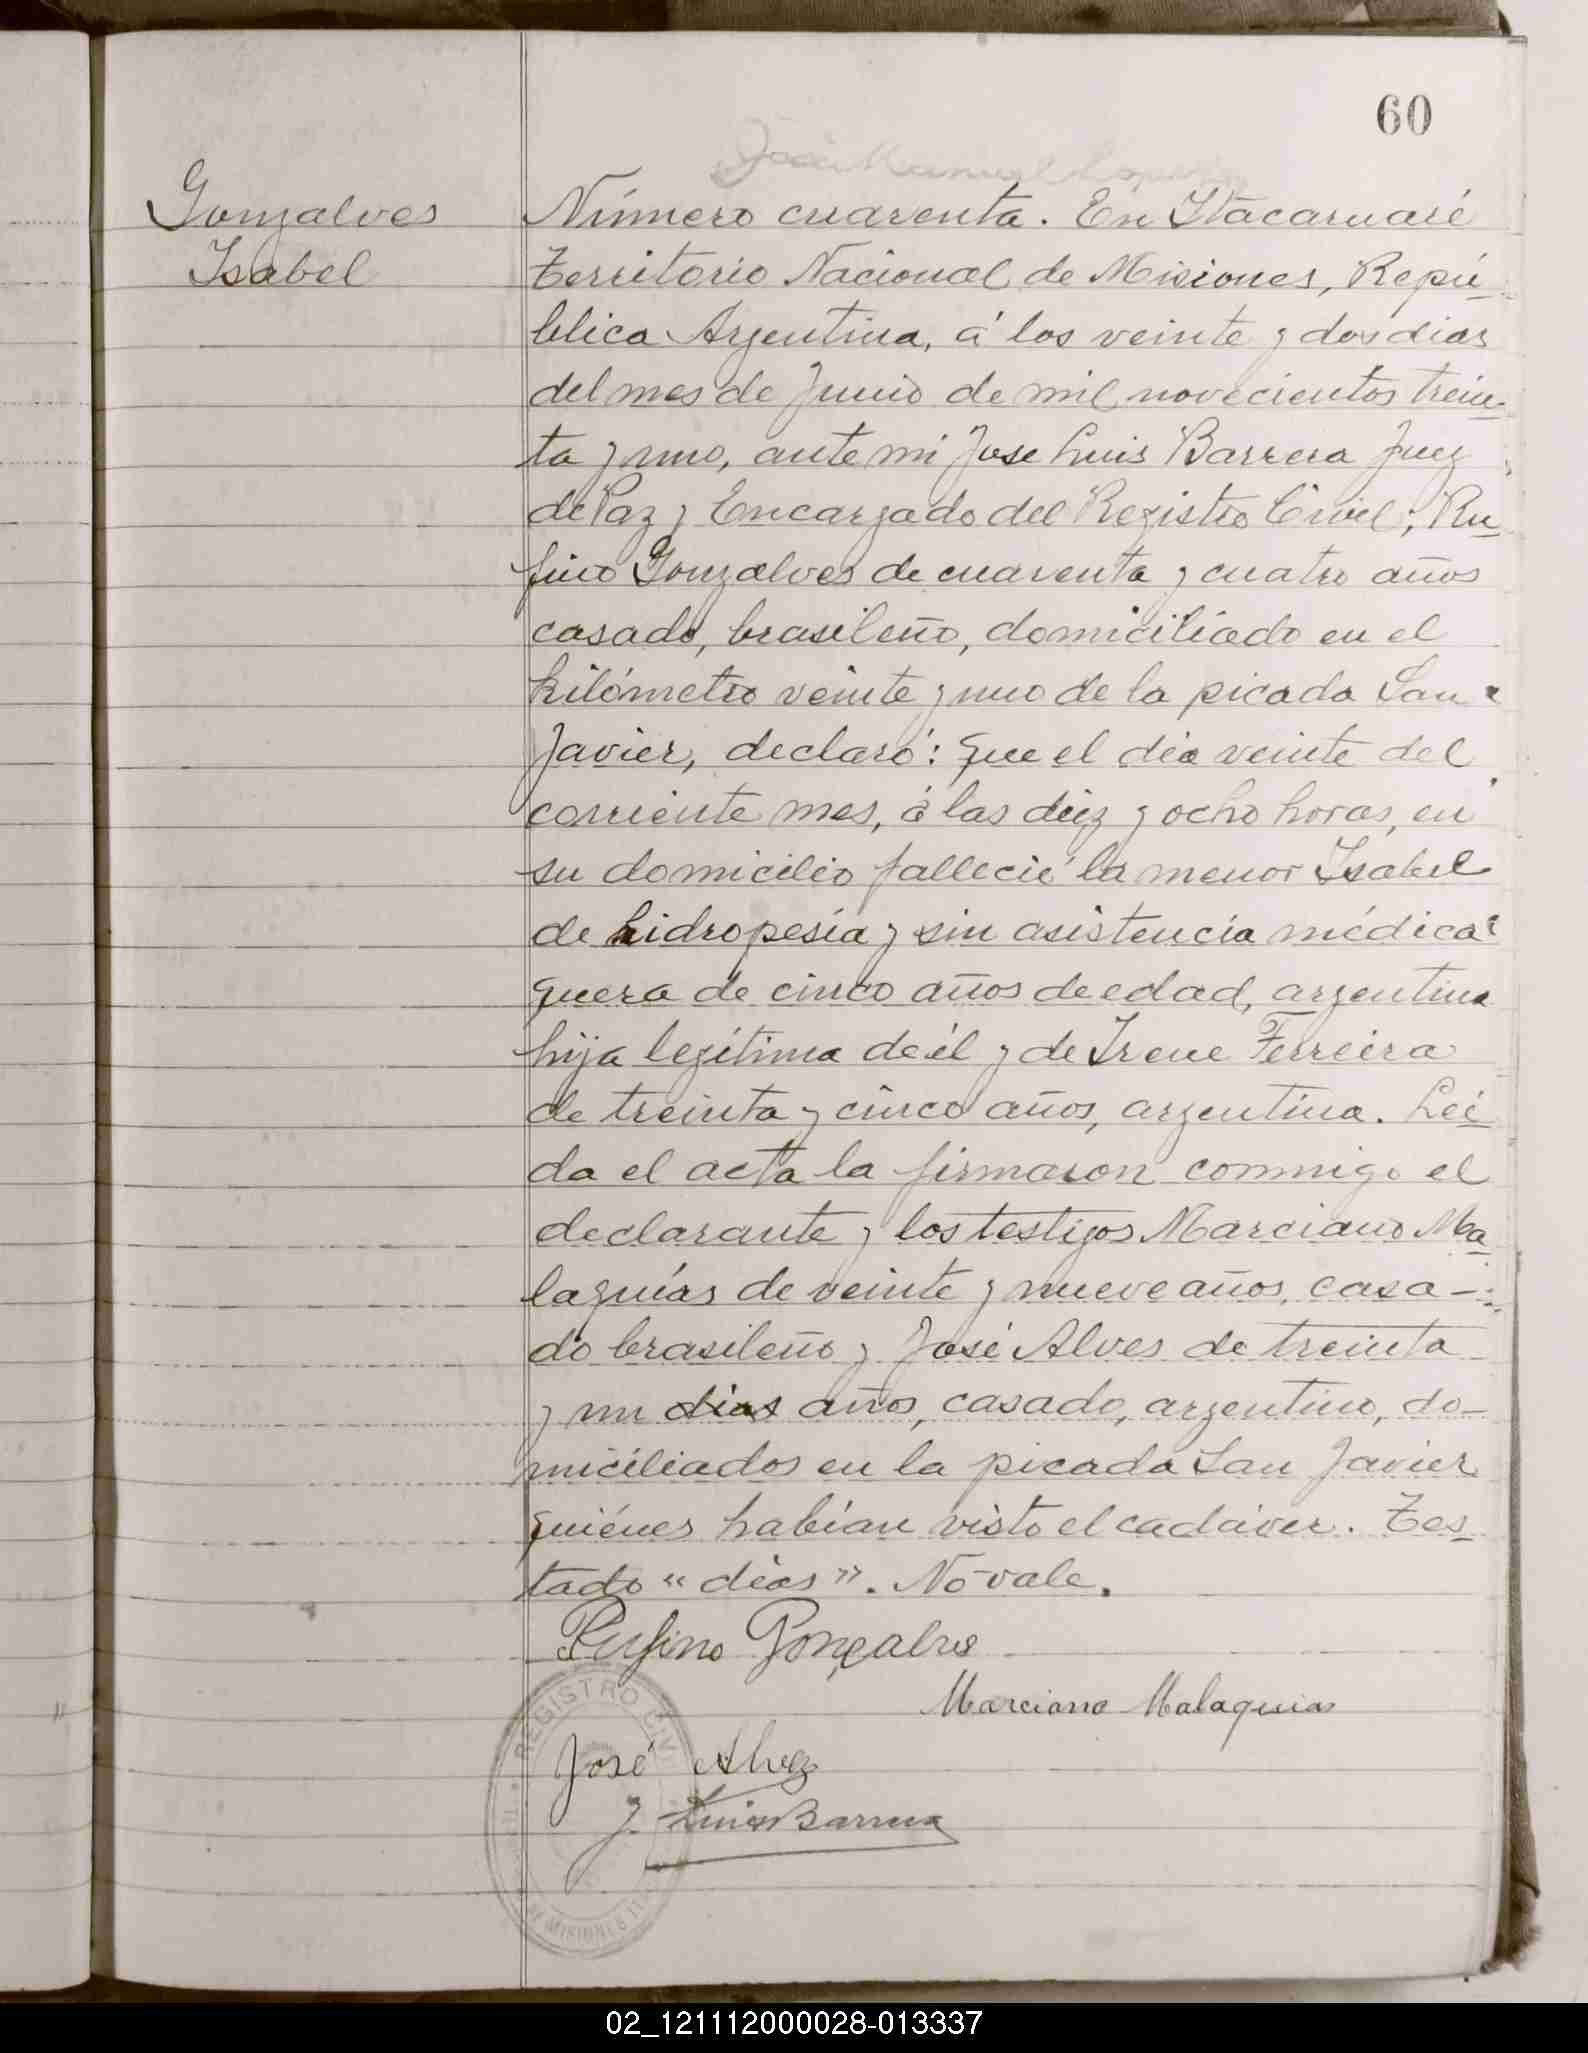 60
José Manuel Lopez
Gonzalves
Isabel
Número cuarenta. En Itacaruaré
Territorio Nacional de Misiones, Repú-
blica Argentina, á los veinte y dos dias
del mes de Junio de mil novecientos trein-
ta y uno, ante mi Jose Luis Barrera Juez
de Paz y Encargado del Registro Civil; Ru-
fino Gonzalves de cuarenta y cuatro años
casado, brasileño, domiciliado en el
kilómetro veinte y uno de la picada San
Javier, declaró: que el dia veinte del
corriente mes, á las diez y ocho horas, en
su domicilio falleció la menor Isabel
de hidropesía y sin asistencia médica
que era de cinco años de edad, argentina
hija legítima de él y de Irene Ferreira
de treinta y cinco años, argentina. Leí-
da el acta la firmaron conmigo el
declarante y los testigos Marciano Ma-
laquías de veinte y nueve años, casa-
do brasileño y José Alves de treinta
y un dias años, casado, argentino, do-
miciliados en la picada San Javier
quiénes habían visto el cadáver. Tes-
tado "dias". No vale.
Rufino Gonçalves
Marciano Malaquias
José Alvez
J. Luis Barrera
REGISTRO CIVIL
MISIONES
02_121112000028-013337